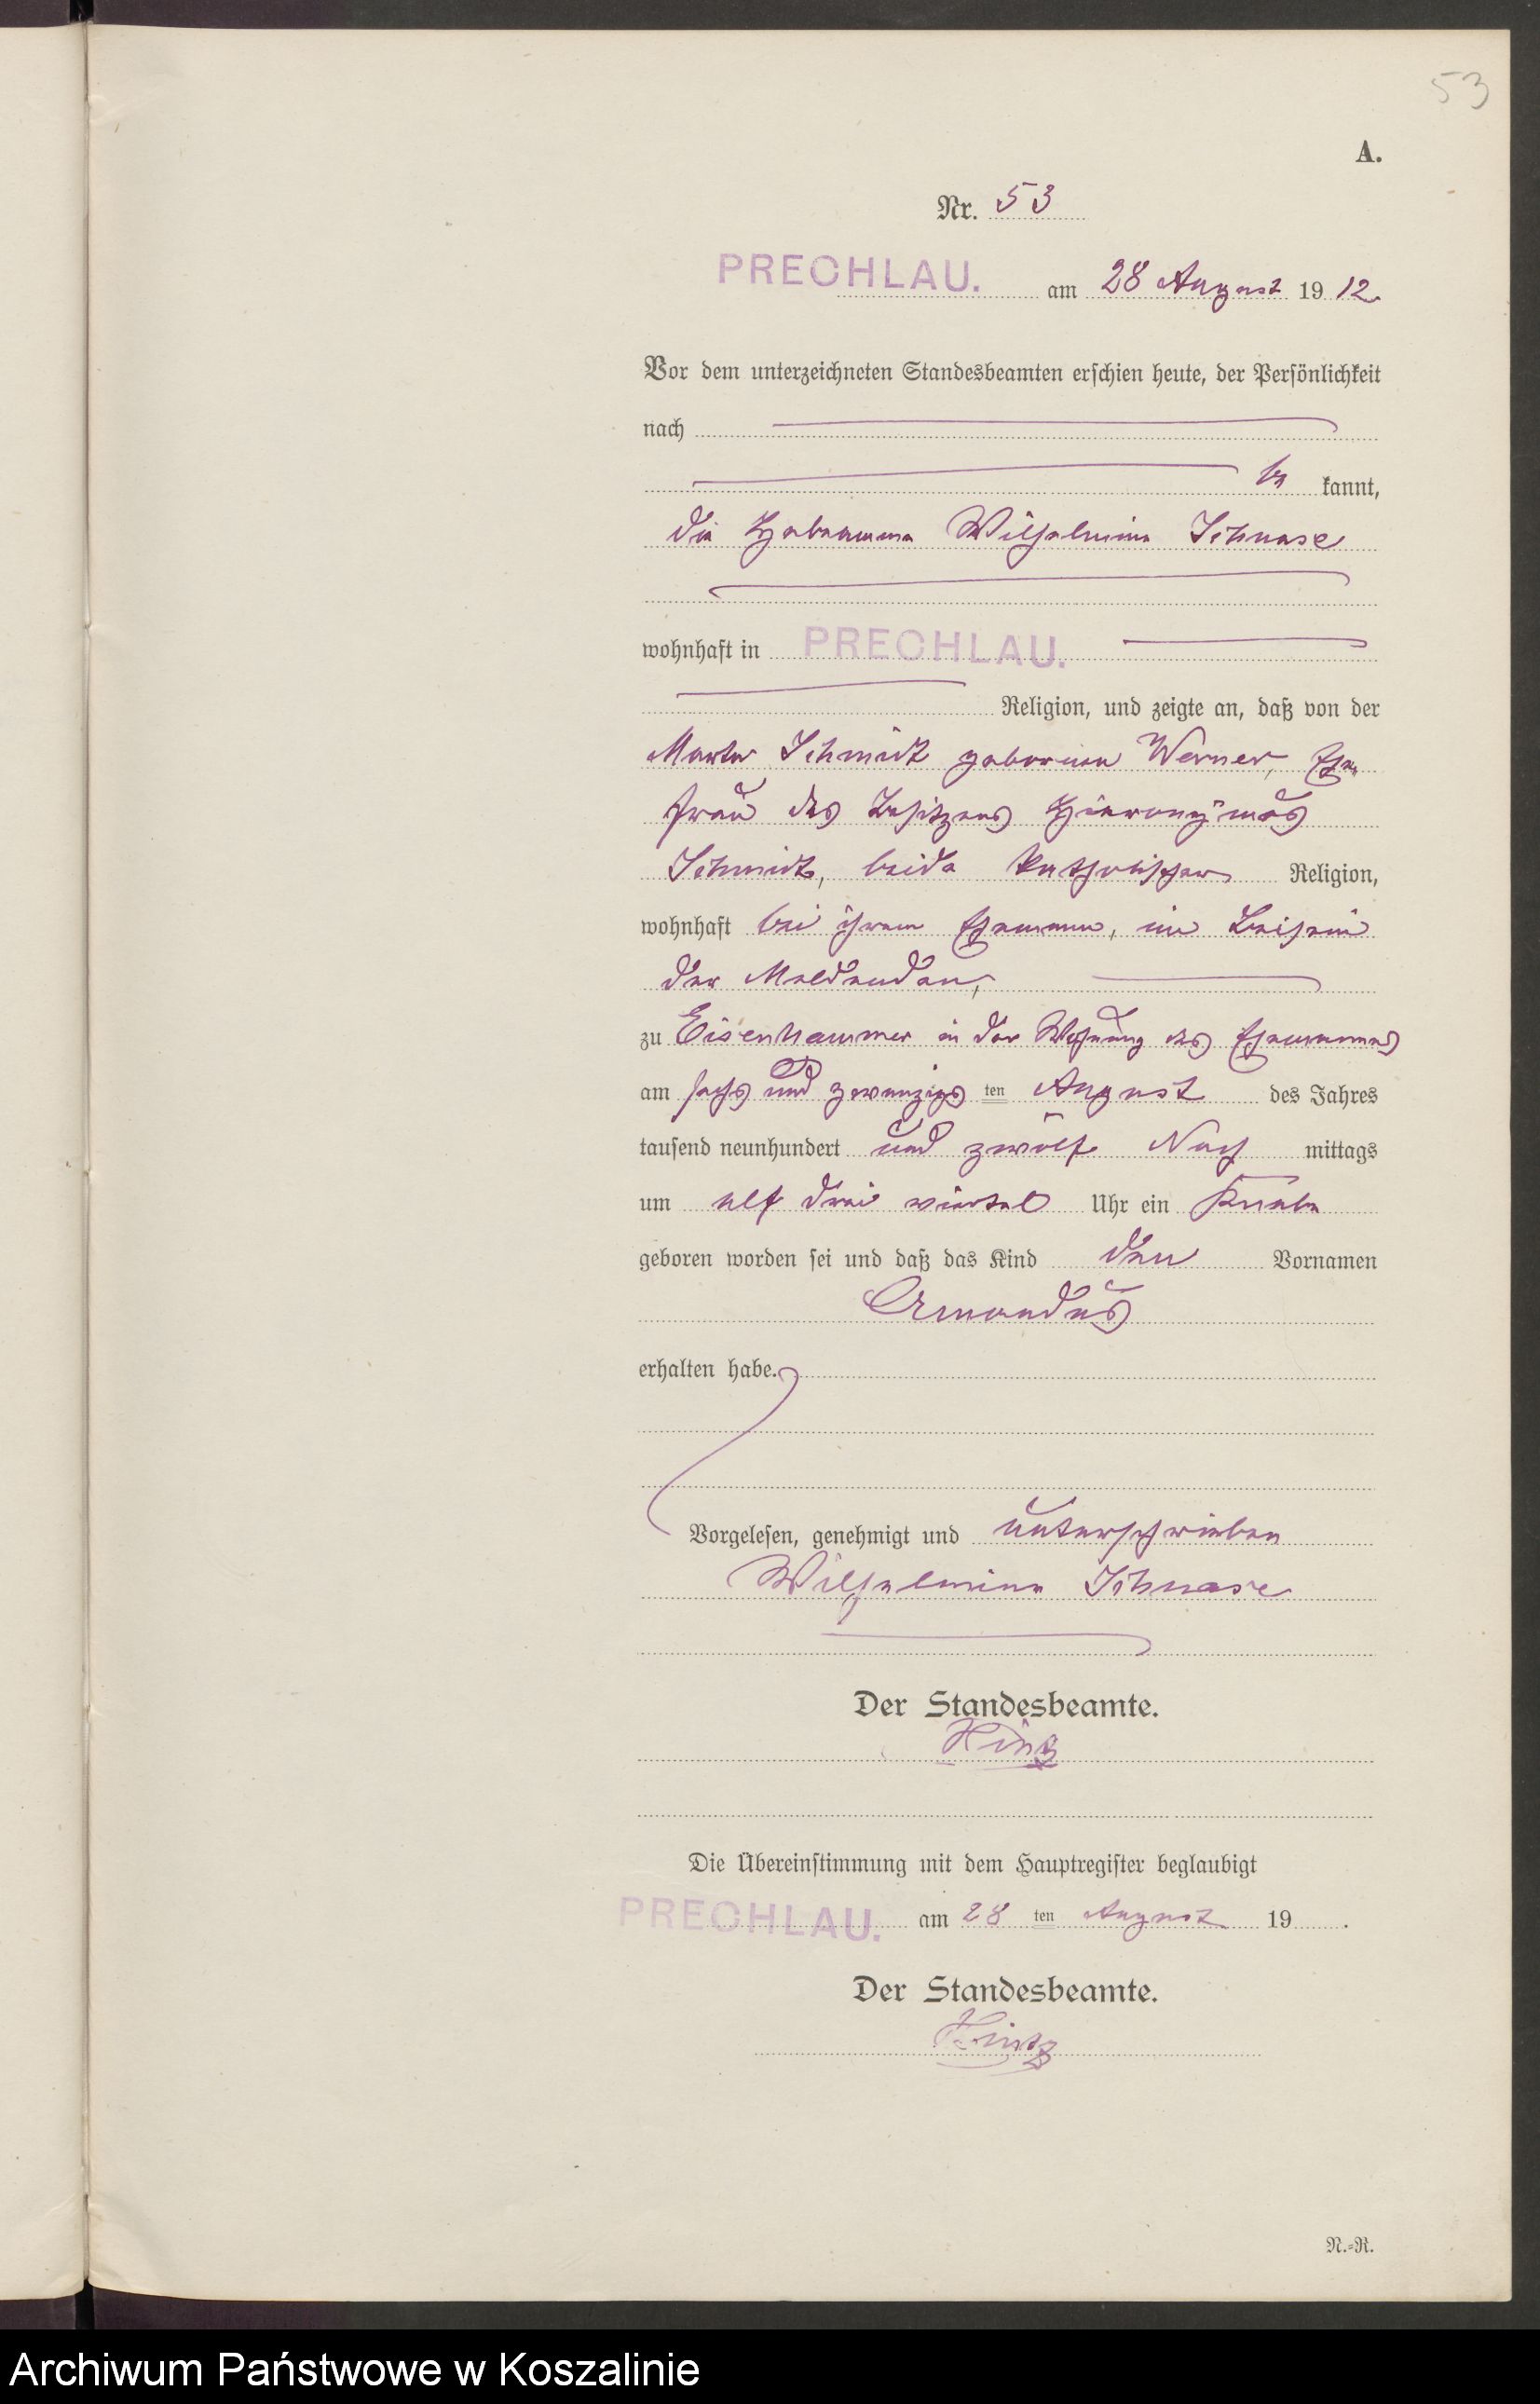 53
A.
Nr. 53
PRECHLAU. am 28 August 1912.
Vor dem unterzeichneten Standesbeamten erschien heute, der Persönlichkeit
nach
be kannt,
die Hebamme Wilhelmine Schnase
wohnhaft in PRECHLAU.
Religion, und zeigte an, daß von der
Marta Schmidt geborenen Werner, Ehe
frau des Besitzers Hieronymus
Schmidt, beide katholischer Religion,
wohnhaft bei ihrem Ehemann, im Beisein
der Meldenden,
zu Eisenhammer in der Wohnung des Ehemannes
am sechs und zwanzigs ten August des Jahres
tausend neunhundert und zwölf Nach mittags
um elf drei viertel Uhr ein Knabe
geboren worden sei und daß das Kind den Vornamen
Amandus
erhalten habe.
Vorgelesen, genehmigt und unterschrieben
Wilhelmine Schnase
Der Standesbeamte.
Hintz
Die Übereinstimmung mit dem Hauptregister beglaubigt
PRECHLAU. am 28 ten August 19 .
Der Standesbeamte.
Hintz
N.=R.
Archiwum Państwowe w Koszalinie